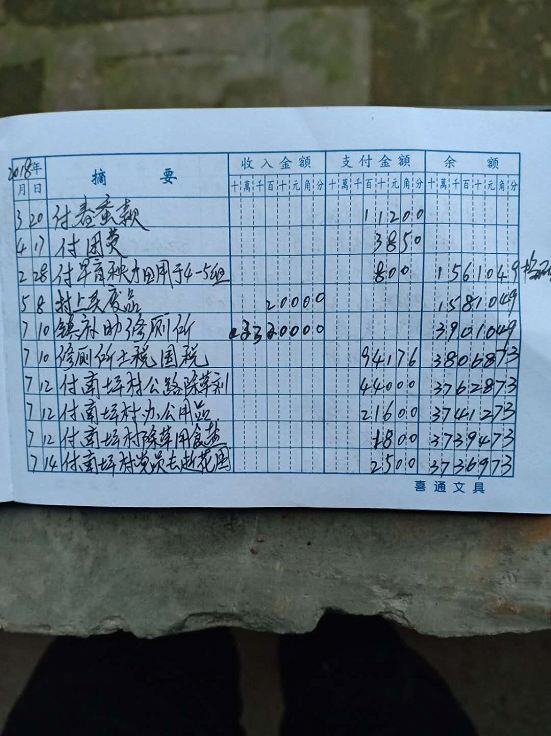 2018年 摘要 收入金額 支付金額 余額
月 日 十萬千百十元角分 十萬千百十元角分 十萬千百十元角分
3 20 付春蚕款 11200
4 17 付团费 3850
2 28 付早育秧 用于4-5组 800 1561049
5 8 村上交废品 20000 1581049
7 10 镇村助修厕所 2320000 3901049
7 10 修厕所上税国税 94176 3806873
7 12 付南坪村公路除草剂 44000 3762873
7 12 付南坪村办公用品 21600 3741273
7 12 付南坪村除草用食盐 1800 3739473
7 14 付南坪村党员去 花园 2500 3736973
喜通文具